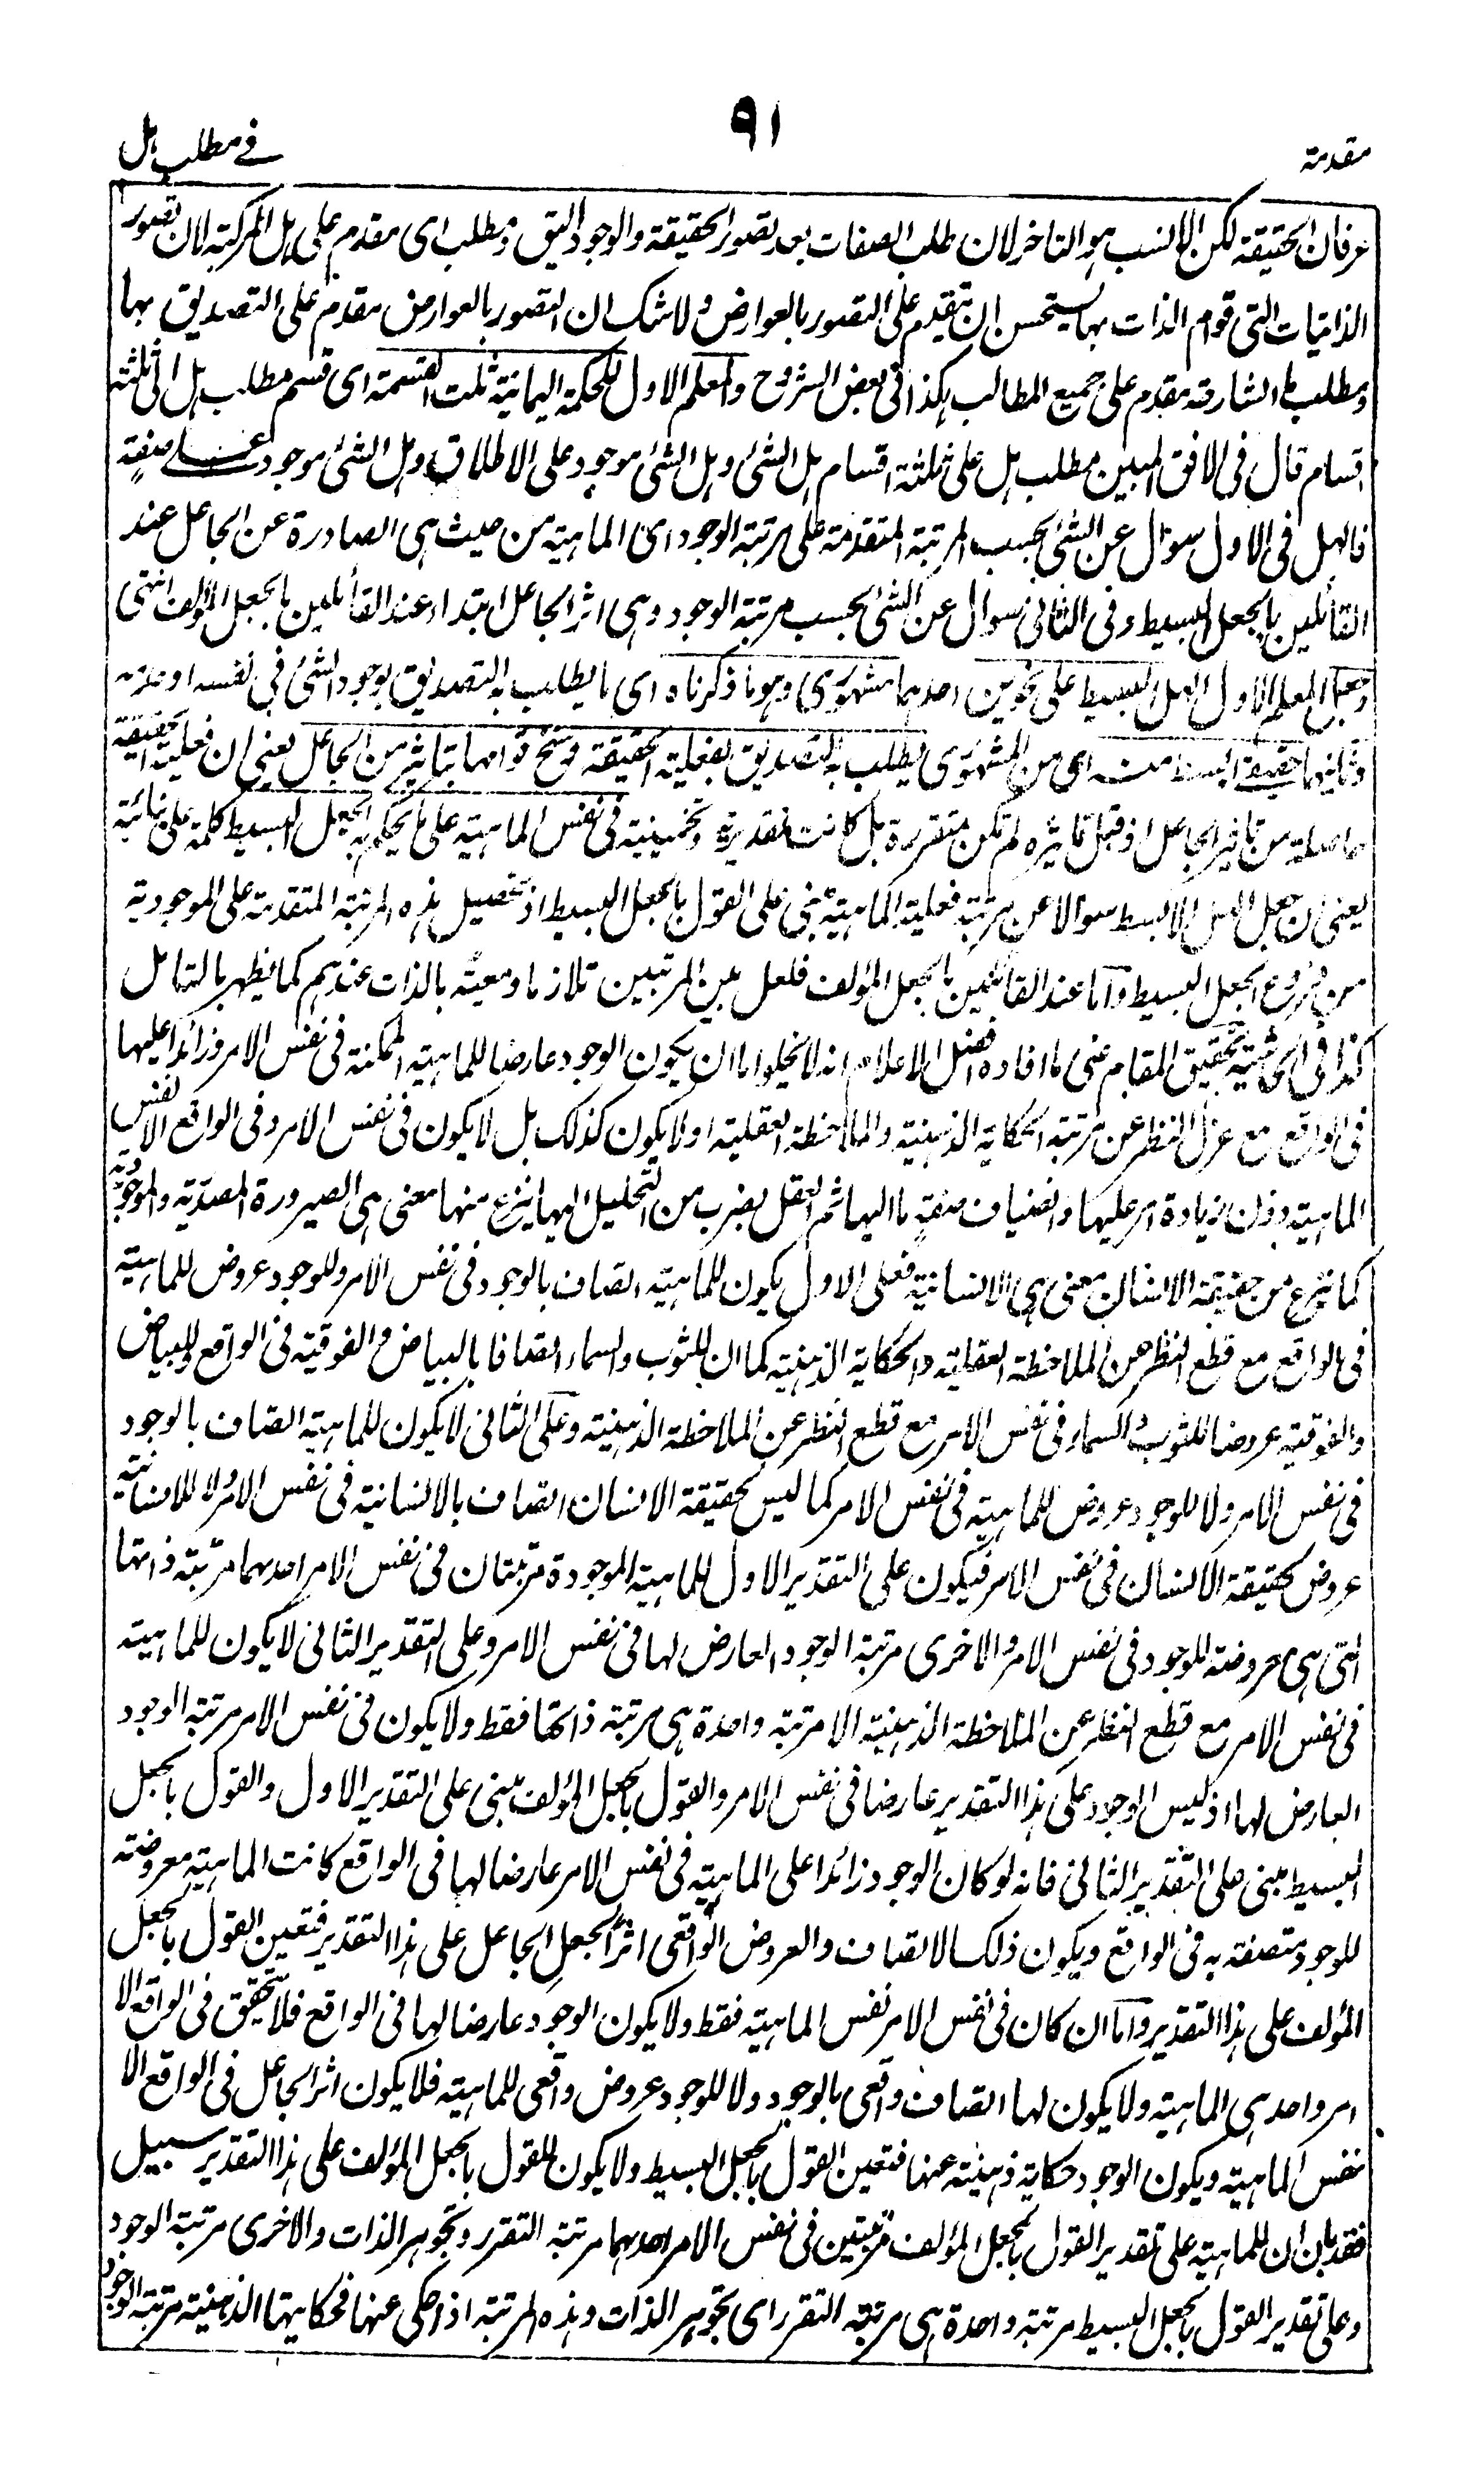 مقدمة
٩١
في مطلب هل
عرفان الحقيقة لكن الانسب هو التاخر لان طلب الصفات بعد تصور الحقيقة والوجود اليق ومطلب اى مقدم على هل المركبة لان تصور
الذاتيات التى قوام الذات بها يستحسن ان يتقدم على التصور بالعوارض ولا شك ان التصور بالعوارض مقدم على التصديق بها
ومطلب ما الشارحة مقدم على جميع المطالب هكذا فى بعض الشروح والمعلم الاول للحكمة اليمانية ثلث القسمة اى قسم مطلب هل الى ثلثة
اقسام قال فى الافق المبين مطلب هل على ثلثة اقسام هل الشئ وهل الشئ موجود على الاطلاق وهل الشئ موجود على صفةٍ
فالهل فى الاول سوال عن الشئ بحسب المرتبة المتقدمة على مرتبة الوجود اى الماهية من حيث هى الصادرة عن الجاعل عند
القائلين بالجعل البسيط وفى الثانى سوال عن الشئ بحسب مرتبة الوجود وهى اثر الجاعل ابتداء عند القائلين بالجعل المؤلف انتهى
وجعل المعلم الاول الهل البسيط على نحوين احدهما مشهورى وهو ما ذكرناه اى ما يطلب به التصديق بوجود الشئ فى نفسه او عدمه
وثانيهما حقيقى ابسط منه اى من المشهورى يطلب به التصديق بفعلية الحقيقة وسنخ قوامها بتاثير من الجاعل يعنى ان فعلية الحقيقة
حاصلة من تاثير الجاعل اذ قبل تاثيره لم تكن متقررة بل كانت تقديرية وتخمينية فى نفس الماهية على ما يحكم به الجعل البسيط كلمة على بنائية
يعنى ان جعل الهل الابسط سوالا عن مرتبة فعلية الماهية مبنى على القول بالجعل البسيط اذ تحصيل هذه المرتبة المتقدمة على الموجودية
من فروع الجعل البسيط واما عند القائلين بالجعل المؤلف فلعل بين المرتبتين تلازما ومعيته بالذات عندهم كما يظهر بالتامل
كذا فى الحاشية تحقيق المقام عنى ما افاده افضل الاعلام انه لا يخلوا ما ان يكون الوجود عارضا للماهية الممكنة فى نفس الامر وزائدا عليها
فى الواقع مع عزل النظر عن مرتبة الحكاية الذهنية والملاحظة العقلية او لا يكون كذلك بل لا يكون فى نفس الامر وفى الواقع الا نفس
الماهية بدون زيادة امر عليها وانضياف صفةٍ ما اليها ثم العقل بضرب من التحليل اليها ينزع منها معنى هى الصيرورة المصدرية والموجودية
كما ينزع من حقيقة الانسان معنى هى الانسانية فعلى الاول يكون للماهية اتصاف بالوجود فى نفس الامر وللوجود عروض للماهية
فى الواقع مع قطع النظر عن الملاحظة العقلية والحكاية الذهنية كما ان للثوب والسماء اتصافا بالبياض والفوقية فى الواقع وللبياض
والفوقية عروضا للثوب والسماء فى نفس الامر مع قطع النظر عن الملاحظة الذهنية وعلى الثانى لا يكون للماهية اتصاف بالوجود
فى نفس الامر ولا للوجود عروض للماهية فى نفس الامر كما ليس لحقيقة الانسان اتصاف بالانسانية فى نفس الامر ولا للانسانية
عروض لحقيقة الانسان فى نفس الامر فيكون على التقدير الاول للماهية الموجودة مرتبتان فى نفس الامر احدهما مرتبة ذاتها
التى هى معروضة للوجود فى نفس الامر والاخرى مرتبة الوجود العارض لها فى نفس الامر وعلى التقدير الثانى لا يكون للماهية
فى نفس الامر مع قطع النظر عن الملاحظة الذهنية الا مرتبة واحدة هى مرتبة ذاتها فقط ولا يكون فى نفس الامر مرتبة الوجود
العارض لها اذ ليس الوجود على هذا التقدير عارضا فى نفس الامر والقول بالجعل المؤلف مبنى على التقدير الاول والقول بالجعل
البسيط مبنى على التقدير الثانى فانه لو كان الوجود زائدا على الماهية فى نفس الامر عارضا لها فى الواقع كانت الماهية معروضة
للوجود متصفة به فى الواقع ويكون ذلك الاتصاف والعروض الواقعى اثر الجعل الجاعل على هذا التقدير فتعين القول بالجعل
المؤلف على هذا التقدير واما ان كان فى نفس الامر نفس الماهية فقط ولا يكون الوجود عارضا لها فى الواقع فلا يتحقق فى الواقع الا
امر واحد هى الماهية ولا يكون لها اتصاف واقعى بالوجود ولا للوجود عروض واقعى للماهية فلا يكون اثر الجاعل فى الواقع الا
نفس الماهية ويكون الوجود حكاية ذهنية عنها فتعين القول بالجعل البسيط ولا يكون للقول بالجعل المؤلف على هذا التقدير سبيل
فقد بان ان للماهية على تقدير القول بالجعل المؤلف مرتبتين فى نفس الامر احدهما مرتبة التقرر وتجوهر الذات والاخرى مرتبة الوجود
وعلى تقدير القول بالجعل البسيط مرتبة واحدة هى مرتبة التقرر اى تجوهر الذات وهذه المرتبة اذا حكى عنها فحكايتها الذهنية مرتبة الوجود